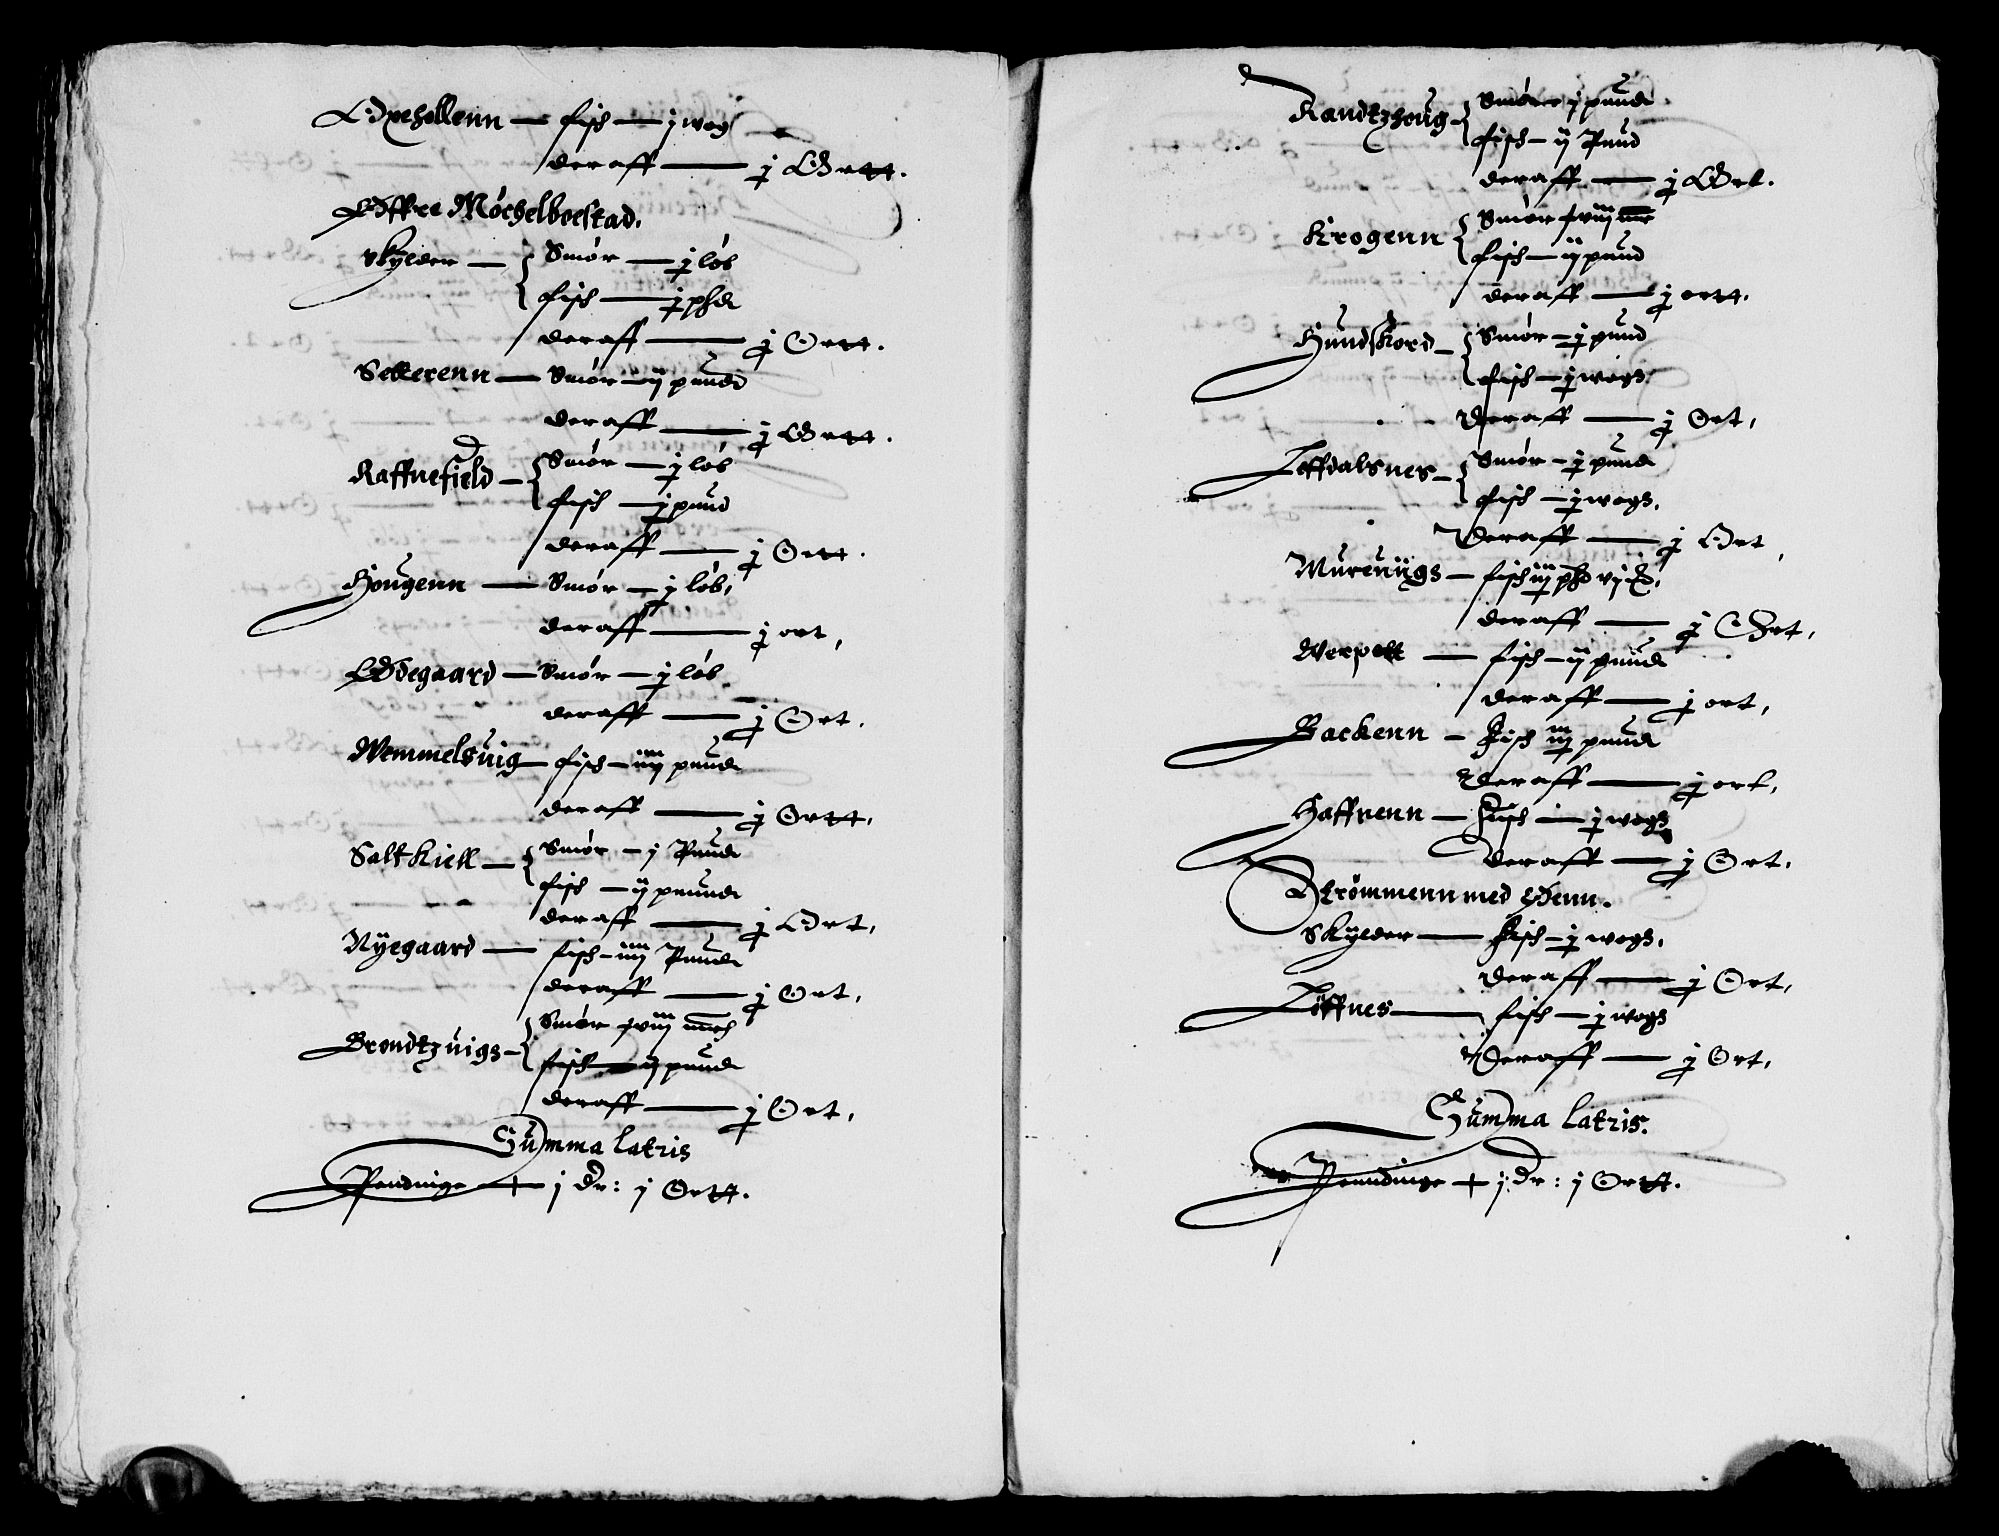 Oxehollenn — fisch — j wog
deraff — j Ortt.
Øffre Møchelboestad.
skylder — Smør — j løb
fisch — j phd
deraff — j Ortt.
Selterenn — Smør — ij pund
deraff — j Ortt.
Raffnefield — Smør — j løb
fisch — j pund
deraff — j Ortt.
Hougenn — Smør — j løb,
deraff — j ort,
Ødegaard — Smør — j løb
deraff — j Ort.
Wemmelsuig — fisch — iiij pund
deraff — j Ortt,
Saltkiell — Smør — j Pund
fisch — ij pund
deraff — j Ort,
Nyegaard — fisch — iiij Pund
deraff — j Ort,
Brendtzuigs — Smør xviij mrch
fisch — ij pund
deraff — j Ort,
Summa latris
Pendinge — j dr: j Ortt.
Randtzhoug — Smør j pund
fisch — ij Pund
deraff — j Ort.
Krogenn — Smør xviij mr
fisch — ij pund
deraff — j ortt,
Hundskord — Smør — j pund
fisch — j wogs
deraff — j Ort,
Leffdalsnes — Smør — j pund
fisch — j wogs,
deraff — j Ort,
Mureuiigs — fisch iij phd vj
deraff — j Ort,
Werpelt — fisch — ij pund
deraff — j ort,
Backenn — Fisch iij pund
deraff — j ort,
Haffnenn — Fisch — j wogs
deraff — j Ort.
Strømmenn med Øenn.
Skylder — Fisch — j wogs,
deraff — j Ort,
Løffnes — fisch — j wogs
deraff — j Ort,
Summa latris.
Penndinge — j dr: j Ortt.